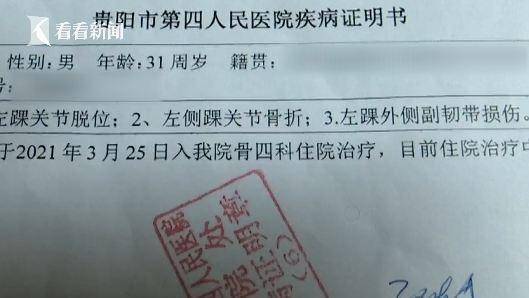 看看新闻
贵阳市第四人民医院疾病证明书
性别:男 年龄:31周岁 籍贯:
号:
左踝关节脱位；2、左侧踝关节骨折；3.左踝外侧副韧带损伤。
于2021年3月25日入我院骨四科住院治疗，目前住院治疗中
人民医院
处章
证明
(6)